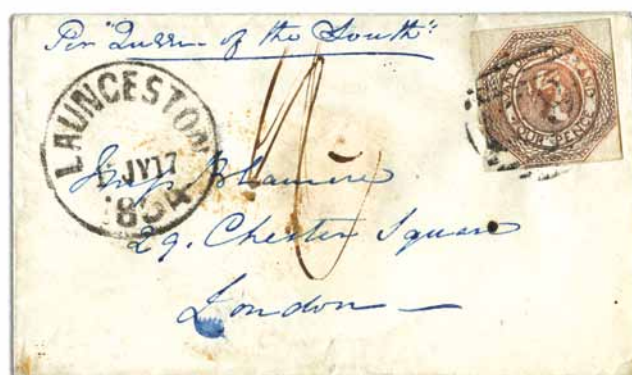 Per "Queen of the South"
VAN DIEMEN'S LAND
FOUR PENCE
LAUNCESTON
JY17
1854
Miss
29. Chester Square
London